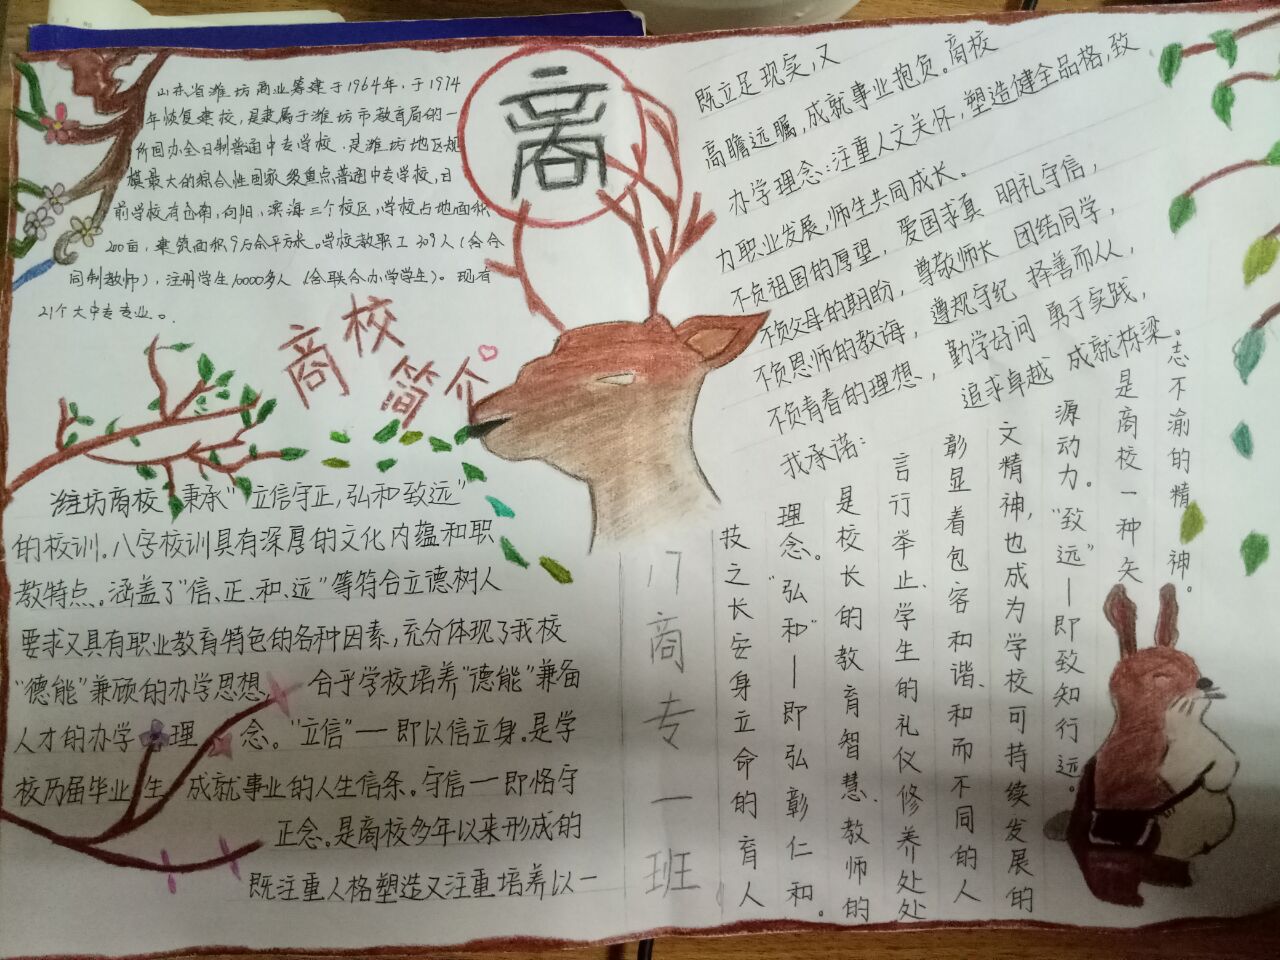 商
山东省潍坊商业筹建于1964年,于1974
年恢复建校,是隶属于潍坊市教育局的一
所国办全日制普通中专学校.是潍坊地区规
模最大的综合性国家级重点普通中专学校,目
前学校有仓南,向阳,滨海三个校区,学校占地面积
200亩,建筑面积9万余平方米。学校教职工309人(含合
同制教师),注册学生10000多人(含联合办学学生)。现有
21个大中专专业。
商校
简介
潍坊商校 秉承“立信守正,弘和致远”
的校训。八字校训具有深厚的文化内蕴和职
教特点。涵盖了“信、正、和、远”等符合立德树人
要求又具有职业教育特色的各种因素,充分体现了我校
“德能”兼顾的办学思想, 合乎学校培养“德能”兼备
人才的办学理念。“立信”—即以信立身。是学
校历届毕业生成就事业的人生信条。守信—即恪守
正念。是商校多年以来形成的
既注重人格塑造又注重培养以一
技之长安身立命的育人
理念。“弘和”—即弘彰仁和。
是校长的教育智慧、教师的
言行举止、学生的礼仪修养处处
彰显着包容和谐、和而不同的人
文精神,也成为学校可持续发展的
源动力。“致远”—即致知行远。
是商校一种矢
志不渝的精神。
既立足现实,又
高瞻远瞩,成就事业抱负。商校
办学理念:注重人文关怀,塑造健全品格,致
力职业发展,师生共同成长。
不负祖国的厚望,爱国求真 明礼守信,
不负父母的期盼,尊敬师长 团结同学,
不负恩师的教诲,遵规守纪 择善而从,
不负青春的理想,勤学好问 勇于实践,
追求卓越 成就栋梁。
我承诺:
17商专一班